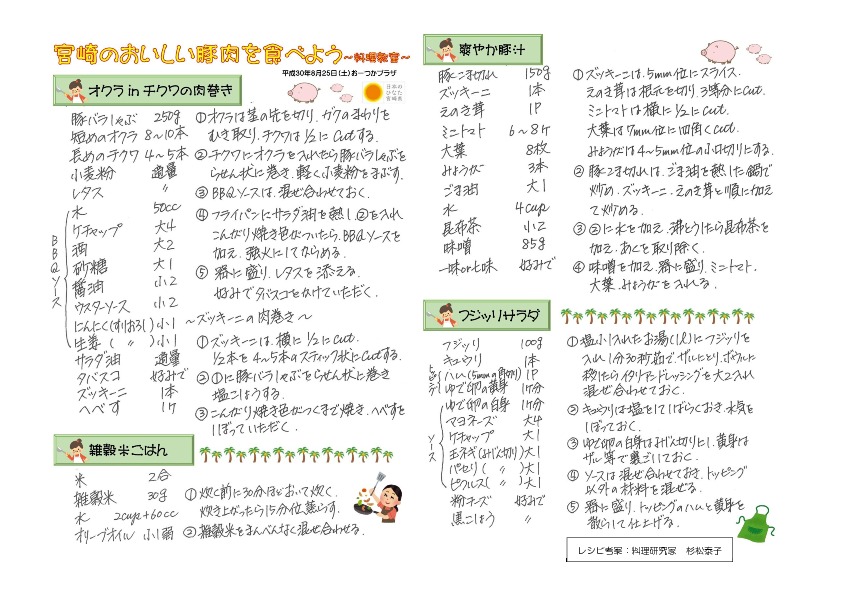 宮崎のおいしい豚肉を食べよう～料理教室～
平成30年8月25日(土)おーつかプラザ
日本の
ひなた
宮崎県
オクラ in チクワの肉巻き
豚バラしゃぶ 250g
短めのオクラ 8～10本
長めのチクワ 4～5本
小麦粉 適量
レタス 〃
BBQソース
水 50cc
ケチャップ 大4
酒 大2
砂糖 大1
醤油 小2
ウスターソース 小2
にんにく(すりおろし) 小1
生姜 ( 〃 ) 小1
サラダ油 適量
タバスコ 好みで
ズッキーニ 1本
へべす 1ケ
①オクラは茎の先を切り、ガクのまわりを
むき取り、チクワは1/2にcutする。
②チクワにオクラを入れたら豚バラしゃぶを
らせん状に巻き、軽く小麦粉をまぶす。
③BBQソースは、混ぜ合わせておく。
④フライパンにサラダ油を熱し、②を入れ
こんがり焼き色がついたら、BBQソースを
加え、強火にしてからめる。
⑤器に盛り、レタスを添える。
好みでタバスコをかけていただく。
～ズッキーニの肉巻き～
①ズッキーニは、横に1/2にcut.
1/2本を4～5本のスティック状にcutする。
②①に豚バラしゃぶをらせん状に巻き
塩こしょうする。
③こんがり焼き色がつくまで焼き、へべすを
しぼっていただく。
雑穀米ごはん
米 2合
雑穀米 30g
水 2cup+60cc
オリーブオイル 小1弱
①炊く前に30分ほどおいて炊く.
炊き上がったら15分位、蒸らす.
②雑穀米をまんべんなく混ぜ合わせる.
爽やか豚汁
豚こま切れ 150g
ズッキーニ 1本
えのき茸 1P
ミニトマト 6～8ヶ
大葉 8枚
みょうが 3本
ごま油 大1
水 4cup
昆布茶 小2
味噌 85g
一味or七味 好みで
①ズッキーニは、5mm位にスライス.
えのき茸は根元を切り、3等分にcut.
ミニトマトは横に1/2にcut.
大葉は7mm位に四角くcut.
みょうがは4～5mm位の小口切りにする.
②豚こま切れは、ごま油を熱した鍋で
炒め、ズッキーニ・えのき茸と順に加え
て炒める.
③②に水を加え、沸とうしたら昆布茶を
加え、あくを取り除く.
④味噌を加え、器に盛り、ミニトマト、
大葉、みょうがを入れる.
フジッリサラダ
フジッリ 100g
キュウリ 1本
ハム(5mmの角切り) 1P
ゆで卵の黄身 1ケ分
ソース
ゆで卵の白身 1ケ分
マヨネーズ 大4
ケチャップ 大1
玉ネギ(みじん切り) 大1
パセリ( 〃 ) 大1
ピクルス( 〃 ) 大1
粉チーズ 好みで
黒こしょう 〃
①塩小1入れたお湯(1ℓ)にフジッリを
入れ、1分30秒茹で、ザルにとり、ボウルに
移したらイタリアンドレッシングを大2入れ
混ぜ合わせておく.
②キュウリは塩をしてしばらくおき、水気を
しぼっておく.
③ゆで卵の白身はみじん切りにし、黄身は
ザル等で裏ごしておく.
④ソースは混ぜ合わせておき、トッピング
以外の材料を混ぜる.
⑤器に盛り、トッピングのハムと黄身を
散らして仕上げる.
レシピ考案：料理研究家 杉松泰子